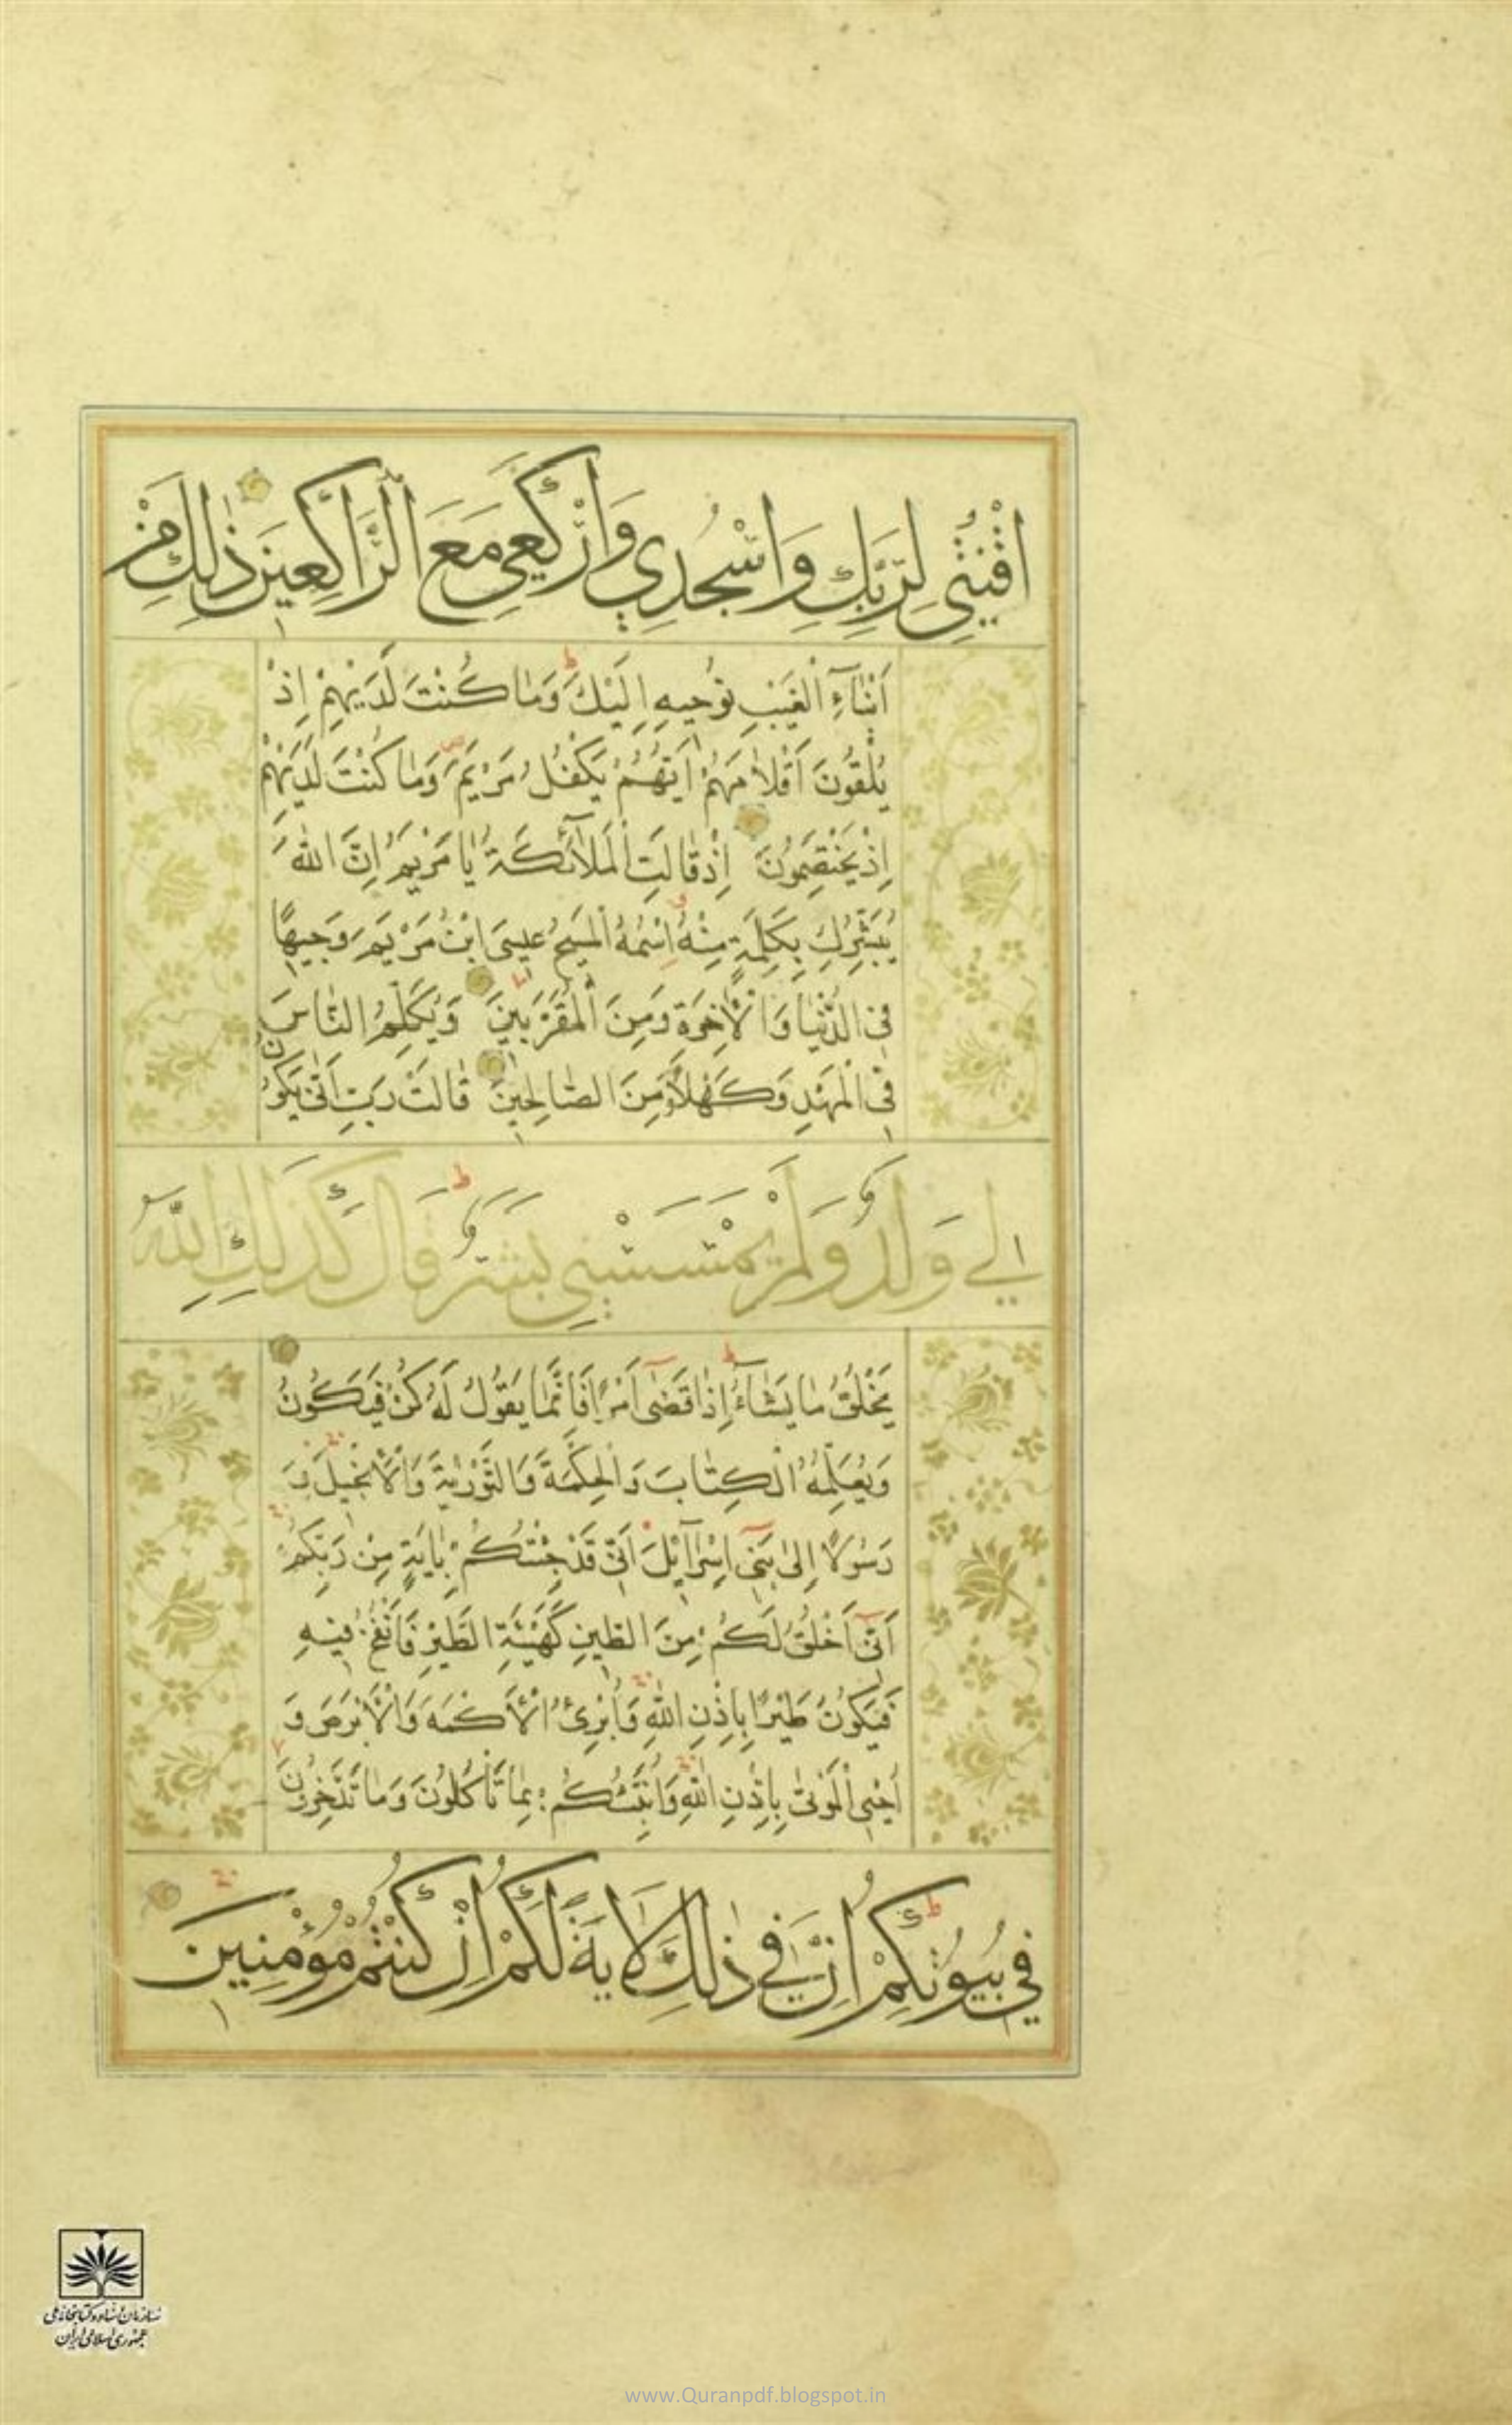 اقْنُتِي لِرَبِّكِ وَاسْجُدِي وَارْكَعِي مَعَ الرَّاكِعِينَ ذٰلِكَ مِنْ
أَنْبَاءِ الْغَيْبِ نُوحِيهِ إِلَيْكَ وَمَا كُنْتَ لَدَيْهِمْ إِذْ
يُلْقُونَ أَقْلَامَهُمْ أَيُّهُمْ يَكْفُلُ مَرْيَمَ وَمَا كُنْتَ لَدَيْهِمْ
إِذْ يَخْتَصِمُونَ إِذْ قَالَتِ الْمَلَائِكَةُ يَا مَرْيَمُ إِنَّ اللَّهَ
يُبَشِّرُكِ بِكَلِمَةٍ مِنْهُ اسْمُهُ الْمَسِيحُ عِيسَى ابْنُ مَرْيَمَ وَجِيهًا
فِي الدُّنْيَا وَالْآخِرَةِ وَمِنَ الْمُقَرَّبِينَ وَيُكَلِّمُ النَّاسَ
فِي الْمَهْدِ وَكَهْلًا وَمِنَ الصَّالِحِينَ قَالَتْ رَبِّ أَنَّى يَكُونُ
لِي وَلَدٌ وَلَمْ يَمْسَسْنِي بَشَرٌ قَالَ كَذٰلِكِ اللَّهُ
يَخْلُقُ مَا يَشَاءُ إِذَا قَضَى أَمْرًا فَإِنَّمَا يَقُولُ لَهُ كُنْ فَيَكُونُ
وَيُعَلِّمُهُ الْكِتَابَ وَالْحِكْمَةَ وَالتَّوْرٰيةَ وَالْإِنْجِيلَ وَ
رَسُولًا إِلَى بَنِي إِسْرَائِيلَ أَنِّي قَدْ جِئْتُكُمْ بِآيَةٍ مِنْ رَبِّكُمْ
أَنِّي أَخْلُقُ لَكُمْ مِنَ الطِّينِ كَهَيْئَةِ الطَّيْرِ فَأَنْفُخُ فِيهِ
فَيَكُونُ طَيْرًا بِإِذْنِ اللَّهِ وَأُبْرِئُ الْأَكْمَهَ وَالْأَبْرَصَ وَ
أُحْيِي الْمَوْتَى بِإِذْنِ اللَّهِ وَأُنَبِّئُكُمْ بِمَا تَأْكُلُونَ وَمَا تَدَّخِرُونَ
فِي بُيُوتِكُمْ إِنَّ فِي ذٰلِكَ لَآيَةً لَكُمْ إِنْ كُنْتُمْ مُؤْمِنِينَ
سازمان اسناد و کتابخانه ملی
جمهوری اسلامی ایران
www.Quranpdf.blogspot.in